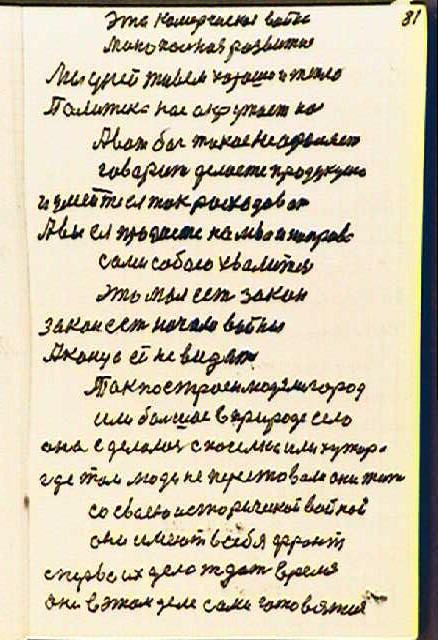 81
Эта комерческая война
мало полная развитие
Мы дней живем хорошо и тепло
Политика нас окружает на
А вот бог такое не одобряет
говарит делаете продукцию
и умейте ея так расходоват
А вы ея продаете на мои направо
сами собою хвалится
Это мол ест закон
закон ест начало войны
А конца ей не видят
Так построен людями город
или большое в природе село
она сделалось с поселка или хутора
где там люди не перестовали они жит
со своею исторической войной
они имеют в себя фронт
сперва их дело ждат время
они в этом деле сами готовятся